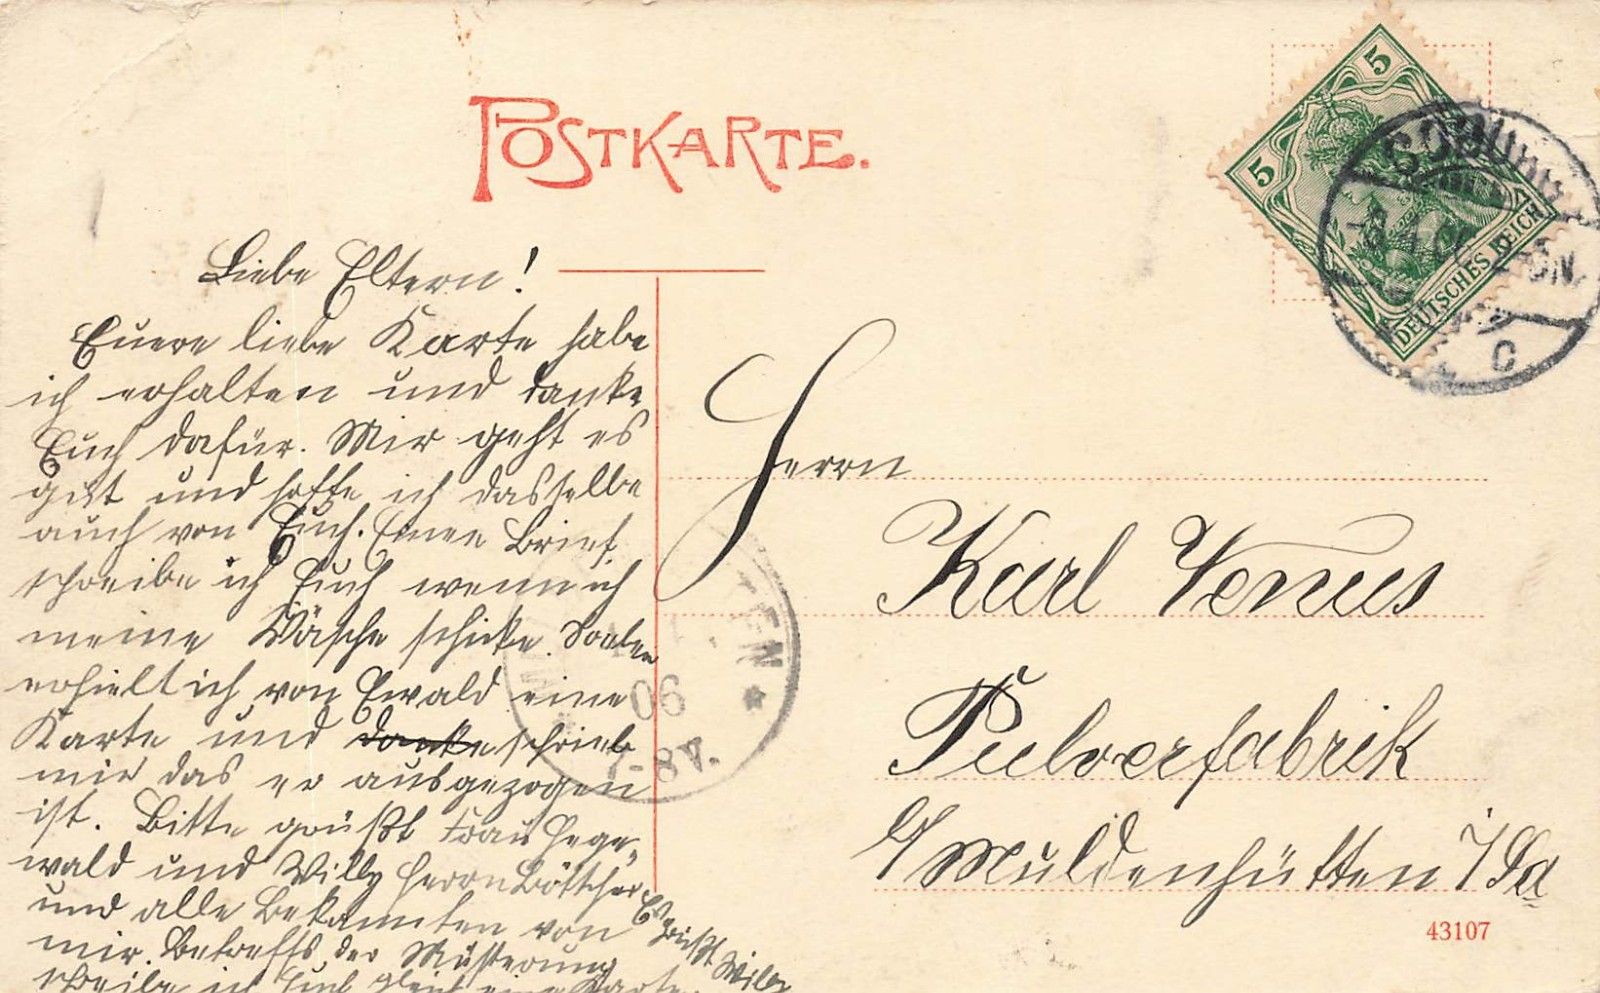 POSTKARTE.
5
5
DEUTSCHES REICH
C
Liebe Eltern!
Euere liebe Karte habe
ich erhalten und danke
Euch dafür. Mir geht es
gut und hoffe ich dasselbe
auch von Euch. Einen Brief
schreibe ich Euch wenn ich
meine Wäsche schicke.
erhielt ich von Ewald eine
Karte und danke schrieb
mir das er ausgezogen
ist. Bitte grüßt Frau Hege-
wald und Willy Herrn Böttcher
und alle Bekannten von
mir. Betreffs der Musterung
schreibe ich Euch gleich eine Karte.
Es grüßt Willy
TEN
06
7-8V.
Herrn
Karl Venus
Pulverfabrik
b/Muldenhütten i/Sa
43107